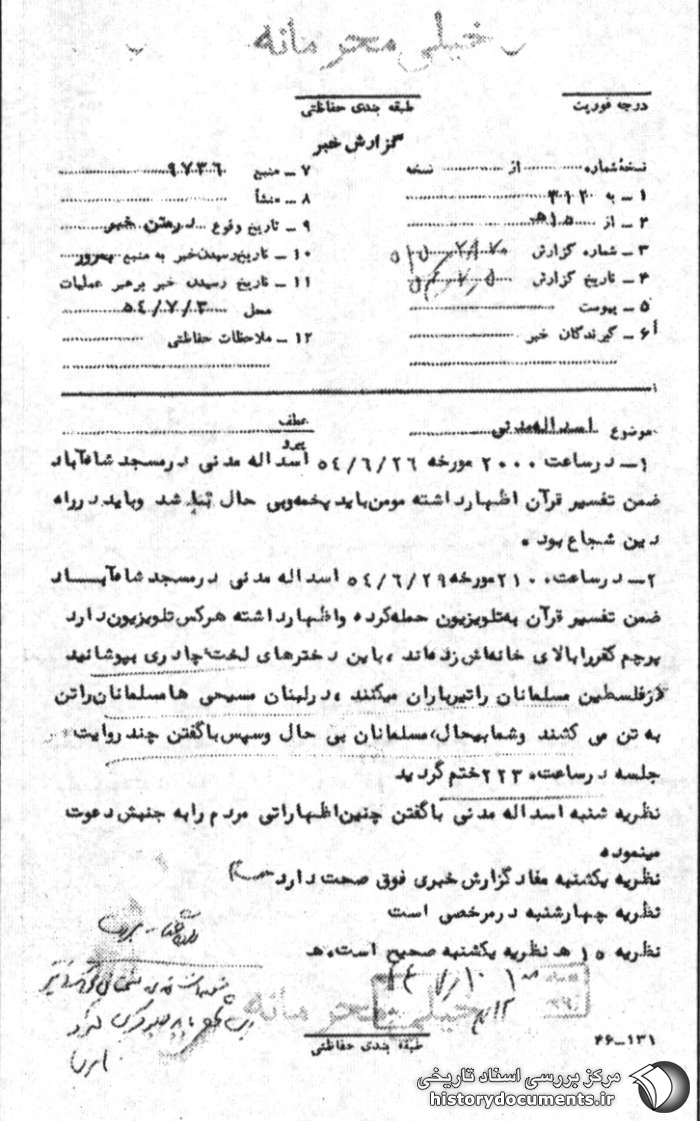 خیلی محرمانه
درجه فوریت
طبقه بندی حفاظتی
گزارش خبر
نسخه شماره ........ از ........ نسخه
۱ ـ به ۳۱۲
۲ ـ از ۱۵ ه
۳ ـ شماره گزارش
۴ ـ تاریخ گزارش
۵ ـ پیوست
۶ ـ گیرندگان خبر
۷ ـ منبع ۹۷۳۶
۸ ـ منشأ
۹ ـ تاریخ وقوع در متن خبر
۱۰ ـ تاریخ رسیدن خبر به منبع بمرور
۱۱ ـ تاریخ رسیدن خبر برهبر عملیات
محل ۵۴/۷/۳
۱۲ ـ ملاحظات حفاظتی
موضوع اسداله مدنی
عطف
پیرو
۱ـ در ساعت ۲۰۰۰ مورخه ۵۴/۶/۲۶ اسداله مدنی در مسجد شاه‌آباد
ضمن تفسیر قرآن اظهار داشته مومن باید و بی حال نباشد و باید در راه
دین شجاع بود .
۲ـ در ساعت ۲۱۰۰ مورخه ۵۴/۶/۲۹ اسداله مدنی در مسجد شاه‌آباد
ضمن تفسیر قرآن به تلویزیون حمله کرده و اظهار داشته هر کس تلویزیون دارد
پرچم کفر را بالای خانه‌اش زده‌اند ، باین دخترهای لخت چادری بپوشانید
در فلسطین مسلمانان را تیرباران میکنند ، در لبنان مسیحی ها مسلمانان را تن
به تن می کشند و شما بیحال ، مسلمانان بی حال و سپس با گفتن چند روایت
جلسه در ساعت ۲۲۳۰ ختم گردید
نظریه شنبه اسداله مدنی با گفتن چنین اظهاراتی مردم را به جنبش دعوت
مینموده
نظریه یکشنبه مفاد گزارش خبری فوق صحت دارد
نظریه چهارشنبه در مرخصی است
نظریه ۱۵ ه نظریه یکشنبه صحیح است. ه
خیلی محرمانه
طبقه بندی حفاظتی
۴۶-۱۳۱
مرکز بررسی اسناد تاریخی
historydocuments.ir